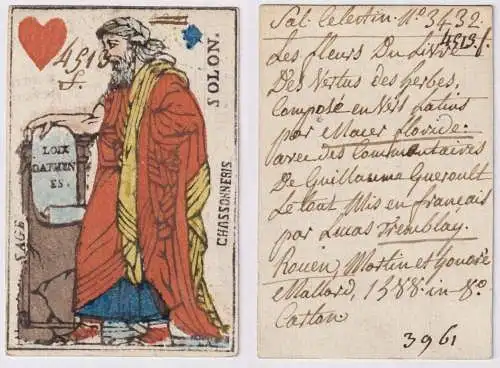 4513
S.
SOLON.
LOIX
DATHEN
ES.
SAGE
CHASSONNERIS
Sal. Celestin. No. 3432.
4513/.
Les fleurs Du Livre
Des Vertus des herbes,
Composé en Vers latins
par Macer floride.
avec des Commentaires
De Guillaume Gueroult
Le tout Mis en français
par Lucas Tremblay.
Rouen, Martin et honore
Mallard, 1588. in-8o
Carton
3961